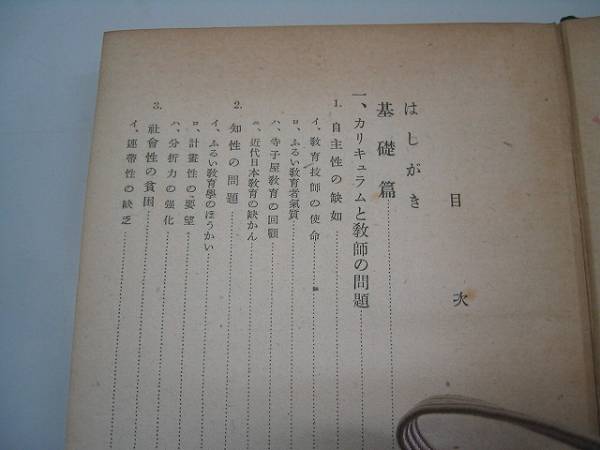 目次
はしがき
基礎篇
一、カリキュラムと教師の問題
1. 自主性の缺如
イ、教育技師の使命
ロ、ふるい教育者氣質
ハ、寺子屋教育の回顧
ニ、近代日本教育の缺かん
2. 知性の問題
イ、ふるい教育學のほうかい
ロ、計畫性の要望
ハ、分析力の强化
3. 社會性の貧困
イ、連帶性の缺乏